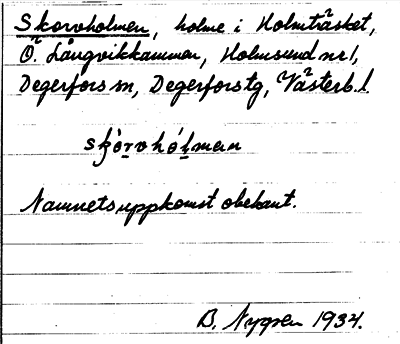 Skorvholmen, holme i Holmträsket,
Ö. Långvikkammen, Holmsund nr 1,
Degerfors sn, Degerfors tg, Västerb. l.
skórvhólmen
Namnets uppkomst obekant.
B. Nygren 1934.